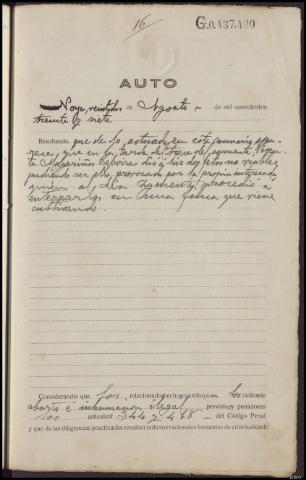 16
G.0.437.420
AUTO
Noya, veintidos de Agosto de mil novecientos
treinta y siete
Resultando que de lo actuado en este sumario apa-
rece, que en la tarde del trece del corriente
Magariños dió a luz dos fetos no viables,
pudiendo ser provocado por la propia interesada
quien al día siguiente procedió a
enterrarlos en una finca que viene
cultivando.
Considerando que los relacionados hechos constituyen los delitos de
aborto é inhumacion ilegal previstos y penados en
los artículos 244 y 418 del Código Penal
y que de las diligencias practicadas resultan indicios racionales bastantes de criminalidad